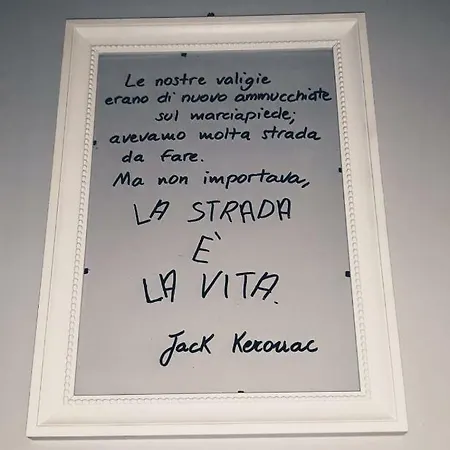 Le nostre valigie
erano di nuovo ammucchiate
sul marciapiede;
avevamo molta strada
da fare.
Ma non importava,
LA STRADA
È
LA VITA.
Jack Kerouac